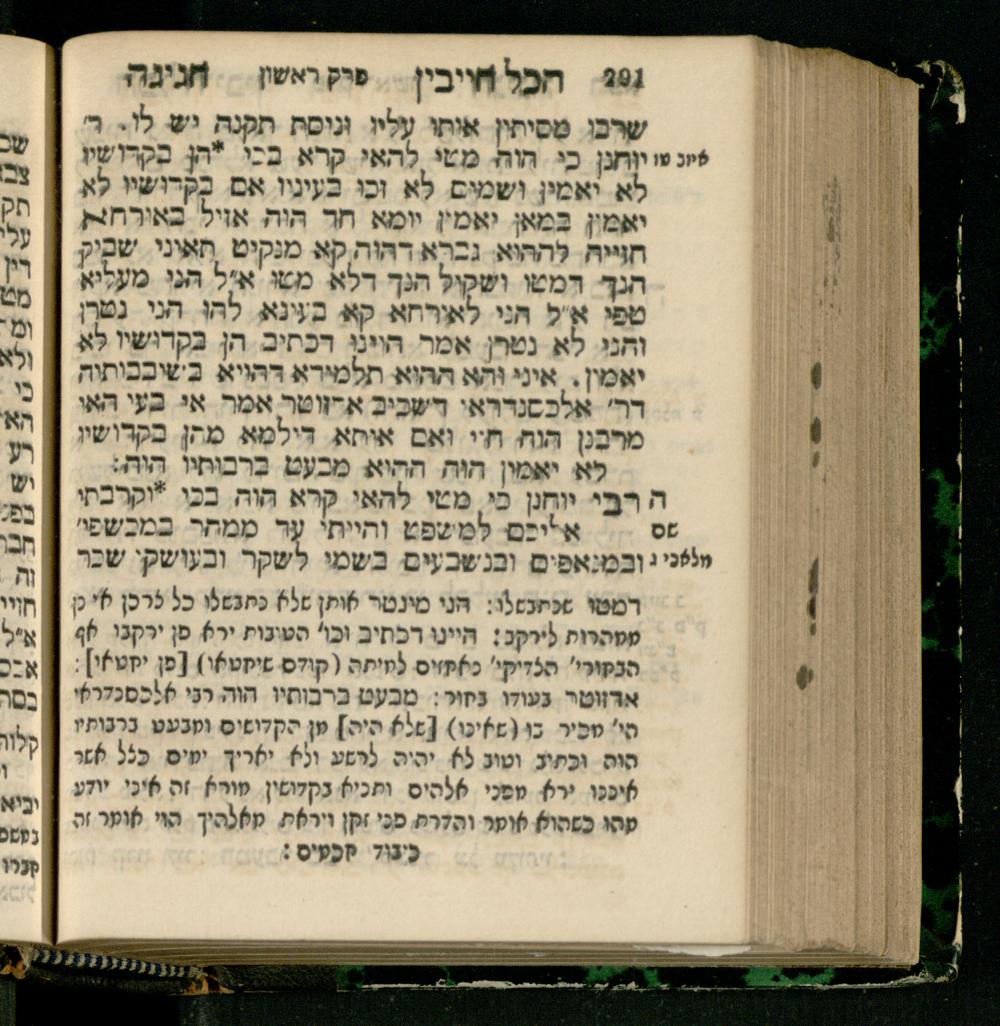 291 הכל חייבין פרק ראשון חגיגה
שרבו מסיתין אותו עליו וניסת תקנה יש לו. ר'
איוב טו יוחנן כי הוה מטי להאי קרא בכי *הן בקדושיו
לא יאמין ושמים לא זכו בעיניו אם בקדושיו לא
יאמין במאן יאמין יומא חד הוה אזיל באורחא
חזייה לההוא גברא דהוה קא מנקיט תאיני שביק
הנך דמטו ושקול הנך דלא מטו א״ל הני מעליא
טפי א״ל הני לאורחא קא בעינא להו הני נטרן
והני לא נטרן אמר היינו דכתיב הן בקדושיו לא
יאמין. איני והא ההוא תלמידא דהויא בשיבבותיה
דר' אלכסנדראי דשכיב אדזוטר אמר אי בעי האי
מרבנן הוה חיי ואם איתא דילמא מהן בקדושיו
לא יאמין הוה ההוא מבעט ברבותיו הוה:
ה רבי יוחנן כי מטי להאי קרא הוה בכי *וקרבתי
שם אליכם למשפט והייתי עד ממהר במכשפי'
מלאכי ג ובמנאפים ובנשבעים בשמי לשקר ובעושקי שכר
דמטו שנתבשלו: הני מינטר אותן שלא נתבשלו כל צרכן אי כן
ממהרות לירקב: היינו דכתיב וכו' הטיבות ירא פן ירקבו אף
הבחורי' הצדיקי' נאמנים למיתה (קודם שיחטאו) [פן יחטאו]:
אדזוטר בעודו בחור: מבעט ברבותיו הוה רבי אלכסנדראי
הי' מכיר בו (שאינו) [שלא היה] מן הקדושים ומבעט ברבותיו
הוה וכתיב וטוב לא יהיה לרשע ולא יאריך ימים כצל אשר
איננו ירא מפני אלהים ותניא בקדושין מורא זה איני יודע
מהו כשהוא אומר והדרת פני זקן ויראת מאלהיך הוי אומר זה
כיבוד חכמים: